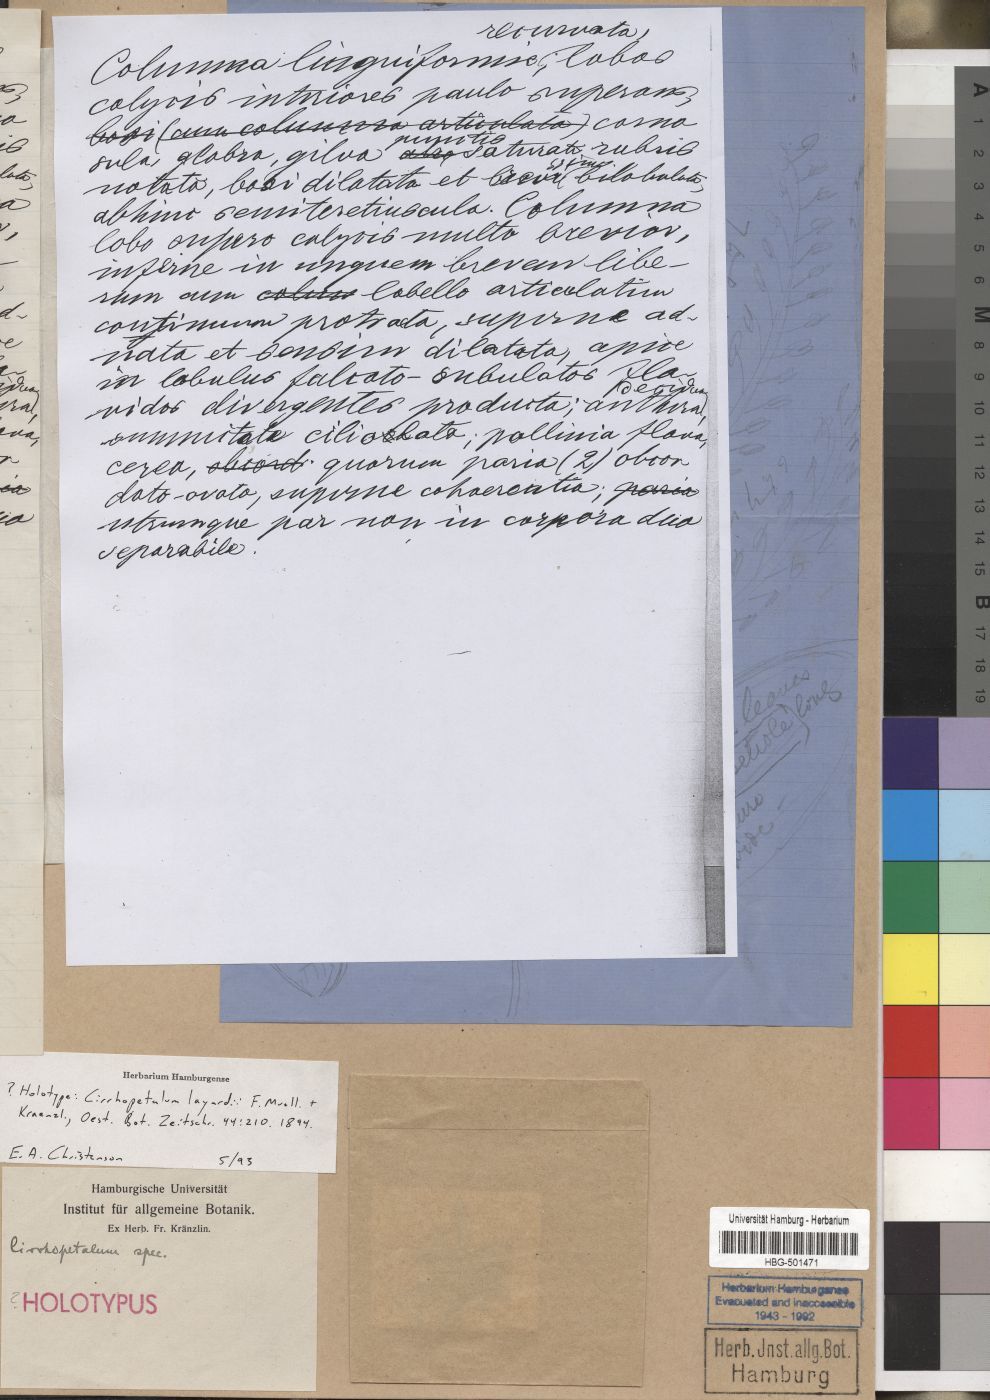 recurvata,
Columna linguiformis; lobos
calycis interiores paulo superans,
basi (cum columna articulata) carno
sula, glabra, gilva punctis saturat. rubris
notata, basi dilatata et bilobulata,
abhinc semiteretiuscula. Columna
lobo supero calycis multo brevior,
inferne in unguem brevem libe-
rum cum labello articulatim
continuum protracta, superne ad-
nata et sensim dilatata, apice
in lobulus falcato-subulatos fla-
vidos divergentes producta; anthera
decidua,
summitate ciliolata; pollinia flava,
cerea, quorum paria (2) obcor
dato-ovata, superne cohaerentia; paria
utrumque par non in corpora duo
separabile.
leaves
petiole) long
Herbarium Hamburgense
? Holotype: Cirrhopetalum layardii F. Muell. +
Kraenzl., Oest. Bot. Zeitschr. 44:210. 1894.
E. A. Christenson 5/93
Hamburgische Universität
Institut für allgemeine Botanik.
Ex Herb. Fr. Kränzlin.
Cirrhopetalum spec.
? HOLOTYPUS
Universität Hamburg - Herbarium
HBG-501471
Herbarium Hamburgense
Evacuated and inaccessible
1943 - 1992
Herb. Inst. allg. Bot.
Hamburg
A 1 2 3 4 5 6 M 8 9 10 11 12 13 14 15 B 17 18 19